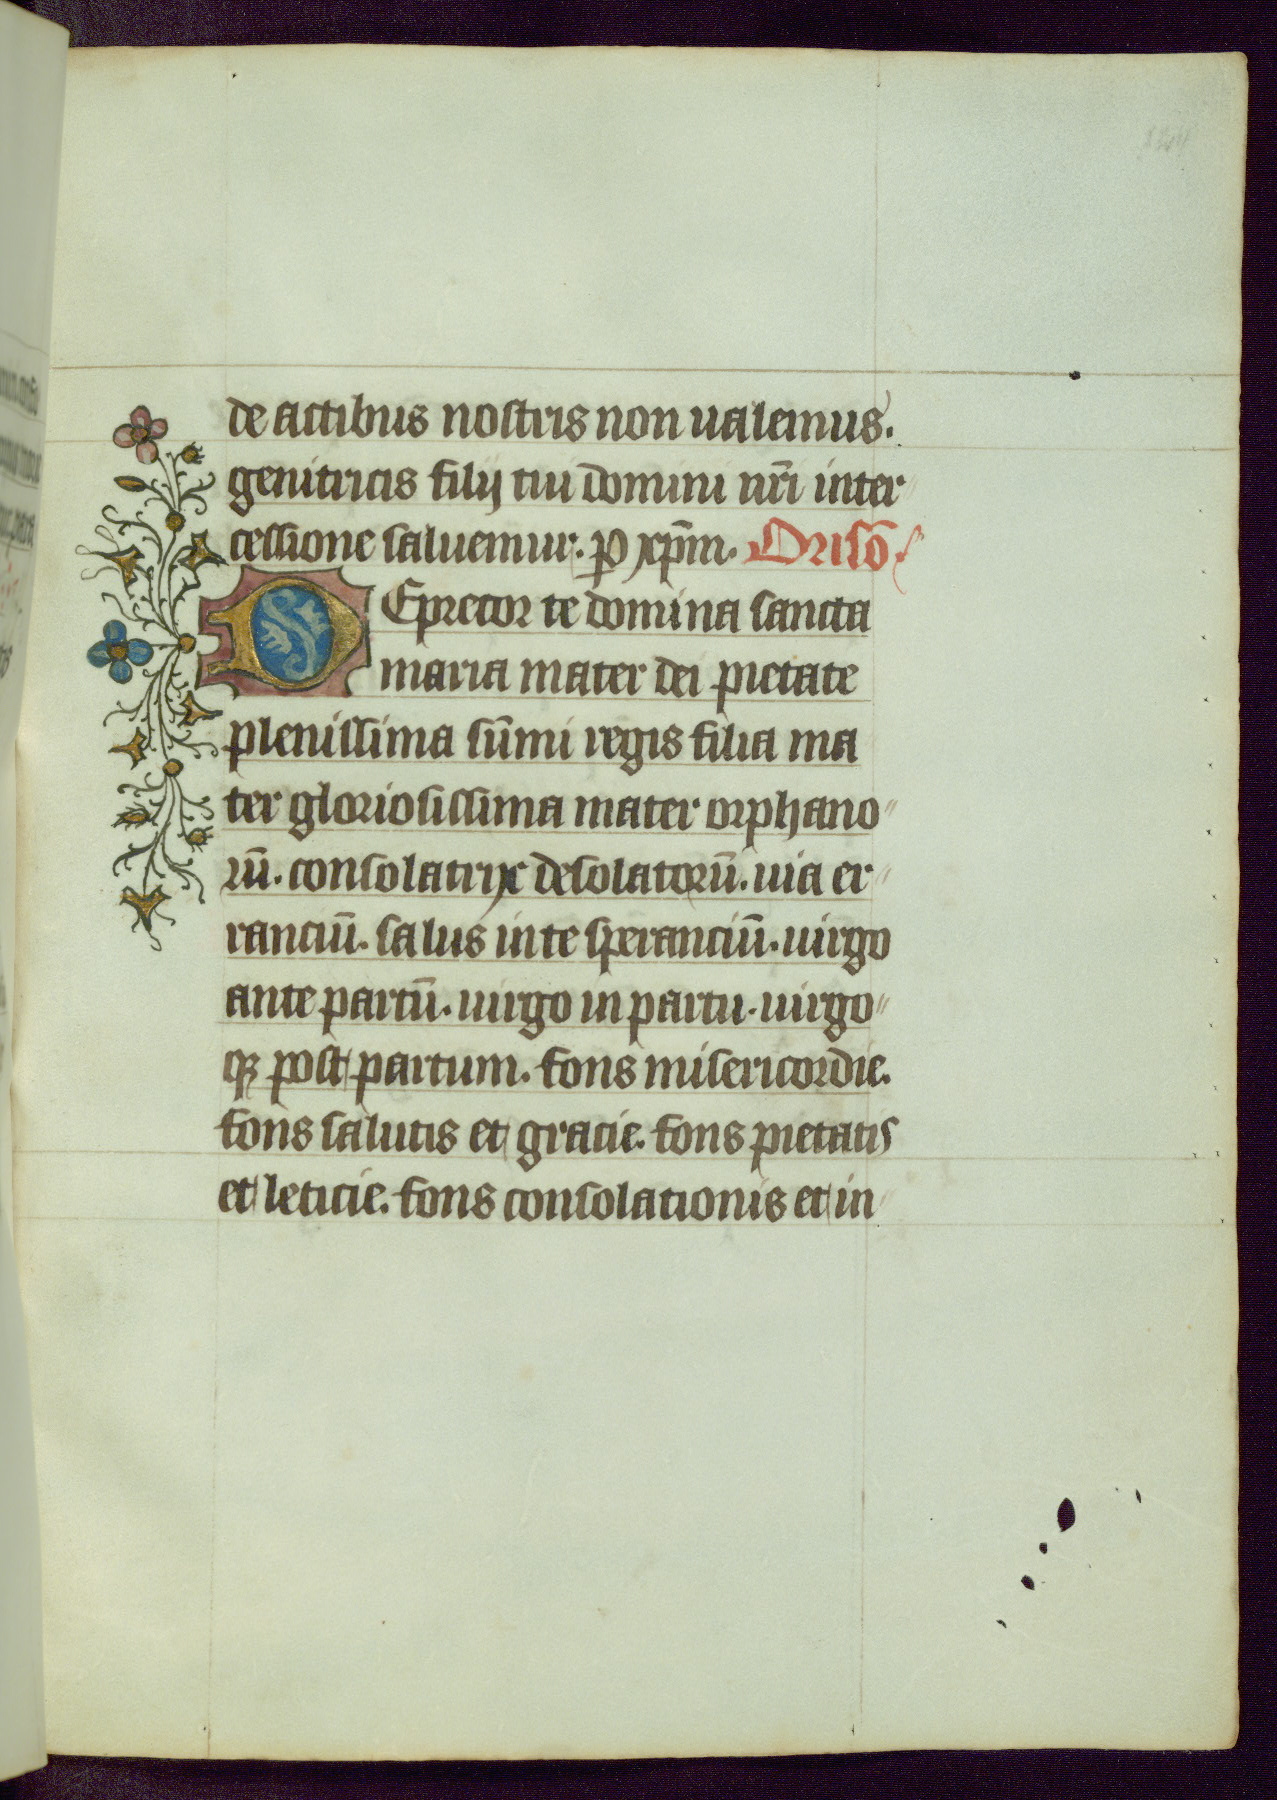 de actibus nostris non ualemus.
genitricis filij tui domini nr̄i inter
cessione saluemur. p xp̄m. Orisō
Deprecor te domina sancta
maria mater dei pietate
plenissima sūmi regis filia ma
ter gloriosissima mater orphano
rū. consolatrix desolatorū. uia er
ranciū. salus in te speranciū. uirgo
ante partū. uirgo in partu. uirgo
qꝫ post partum. fons misericordie.
fons salutis et gracie. fons pietatis
et leticie. fons consolationis et in